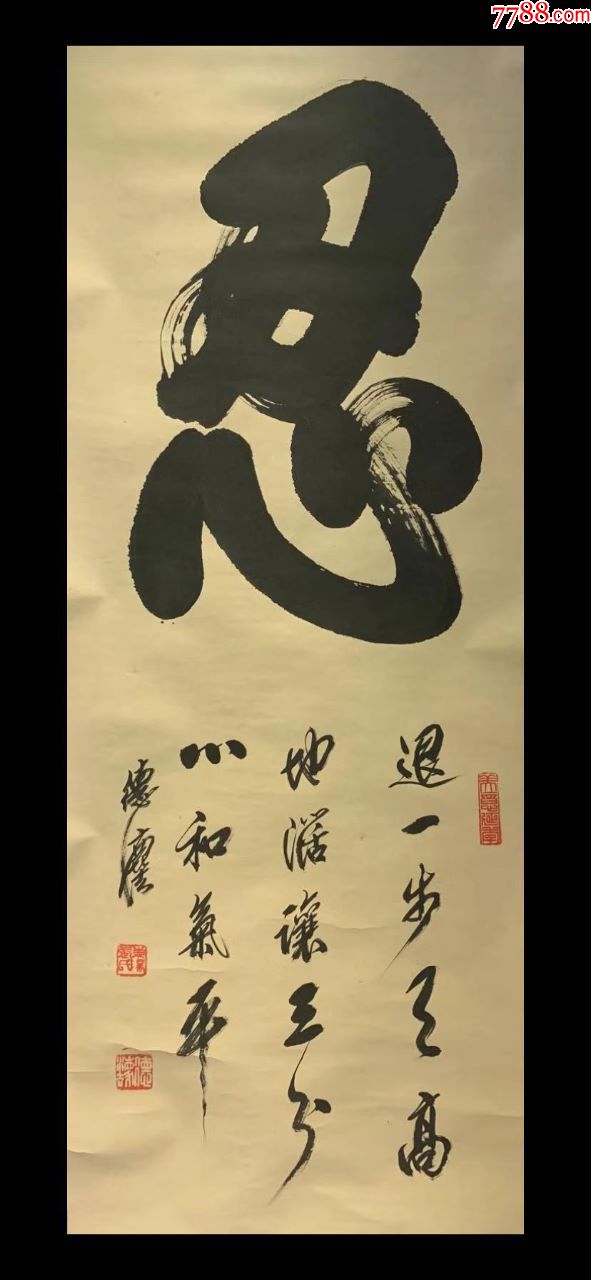 7788.com
忍
退一步天高
地濶讓三分
心和氣平
德